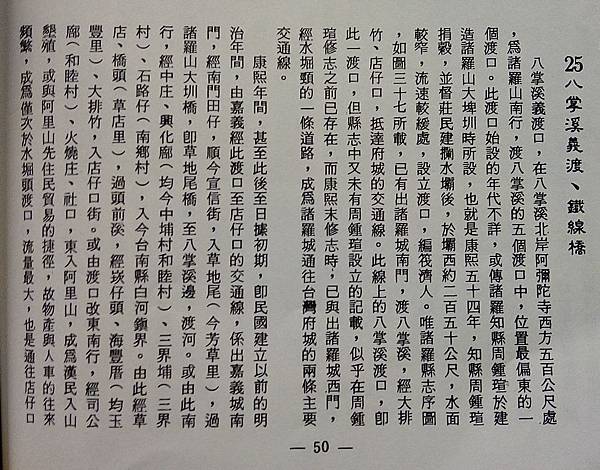 25八掌溪義渡、鐵線橋
八掌溪義渡口，在八掌溪北岸阿彌陀寺西方五百公尺處
，爲諸羅山南行，渡八掌溪的五個渡口中，位置最偏東的一
個渡口。此渡口始設的年代不詳，或傳諸羅知縣周鍾瑄於建
造諸羅山大埤圳時所設，也就是康熙五十四年，知縣周鍾瑄
捐穀，並督莊民建攔水壩後，於壩西約二百五十公尺，水面
較窄，流速較緩處，設立渡口，編筏濟人。唯諸羅縣志序圖
，如圖三十七所載，已有出諸羅城南門，渡八掌溪，經大排
竹、店仔口，抵達府城的交通線。此線上的八掌溪渡口，卽
此一渡口，但縣志中又未有周鍾瑄設立的記載，似乎在周鍾
瑄修志之前已存在，而康熙末修志時，已與出諸羅城西門，
經水堀頭的一條道路，成爲諸羅城通往台灣府城的兩條主要
交通線。
康熙年間，甚至此後至日據初期，卽民國建立以前的明
治年間，由嘉義經此渡口至店仔口的交通線，係出嘉義城南
門，經南門田仔，順今宣信街，入草地尾（今芳草里），過
諸羅山大圳橋，卽草地尾橋，至八掌溪邊，渡河。或由此南
行，經中庄、興化廍（均今中埔村和睦村）、三界埔（三界
村）、石路仔（南鄉村），入今台南縣白河鎭界。由此經草
店、橋頭（草店里），過頭前溪，經崁仔頭、海豐厝（均玉
豐里）、大排竹，入店仔口街。或由渡口改東南行，經司公
廍（和睦村）、火燒庄、社口，東入阿里山，成爲漢民入山
墾殖，或與阿里山先住民貿易的捷徑，故物產與人車的往來
頻繁，成爲僅次於水堀頭渡口，流量最大，也是通往店仔口
— 50 —